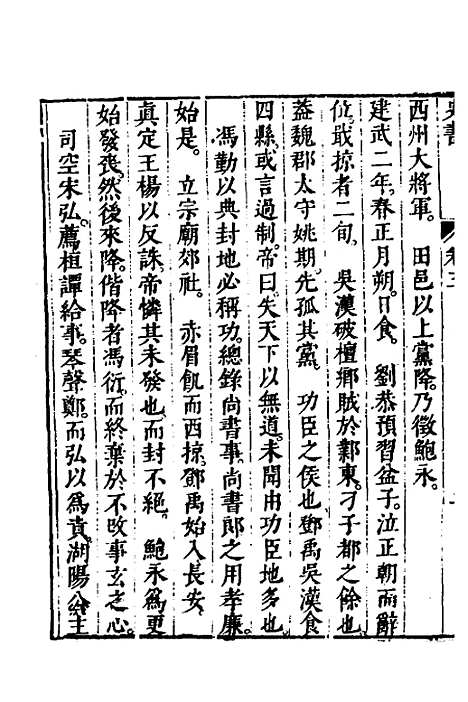 西州大將軍。　田邑以上黨降。乃徵鮑永。
建武二年。春正月朔。日食。　劉恭預習盆子。泣正朝而辭
位。戢掠者二旬。　吳漢破檀鄉賊於鄴東。刁子都之餘也。
葢魏郡太守姚期。先孤其黨。　功臣之侯也。鄧禹吳漢食
四縣。或言過制。帝曰。失天下以無道。未聞由功臣地多也。
馮勤以典封地必稱功。總錄尚書事。尚書郎之用孝廉。
始是。　立宗廟郊社。　赤眉飢而西掠。鄧禹始入長安。
眞定王楊以反誅。帝憐其未發也。而封不絕。　鮑永爲更
始發喪。然後來降。偕降者馮衍。而終棄於不改事玄之心。
司空宋弘。薦桓譚給事。琴聲鄭。而弘以爲責。湖陽公主